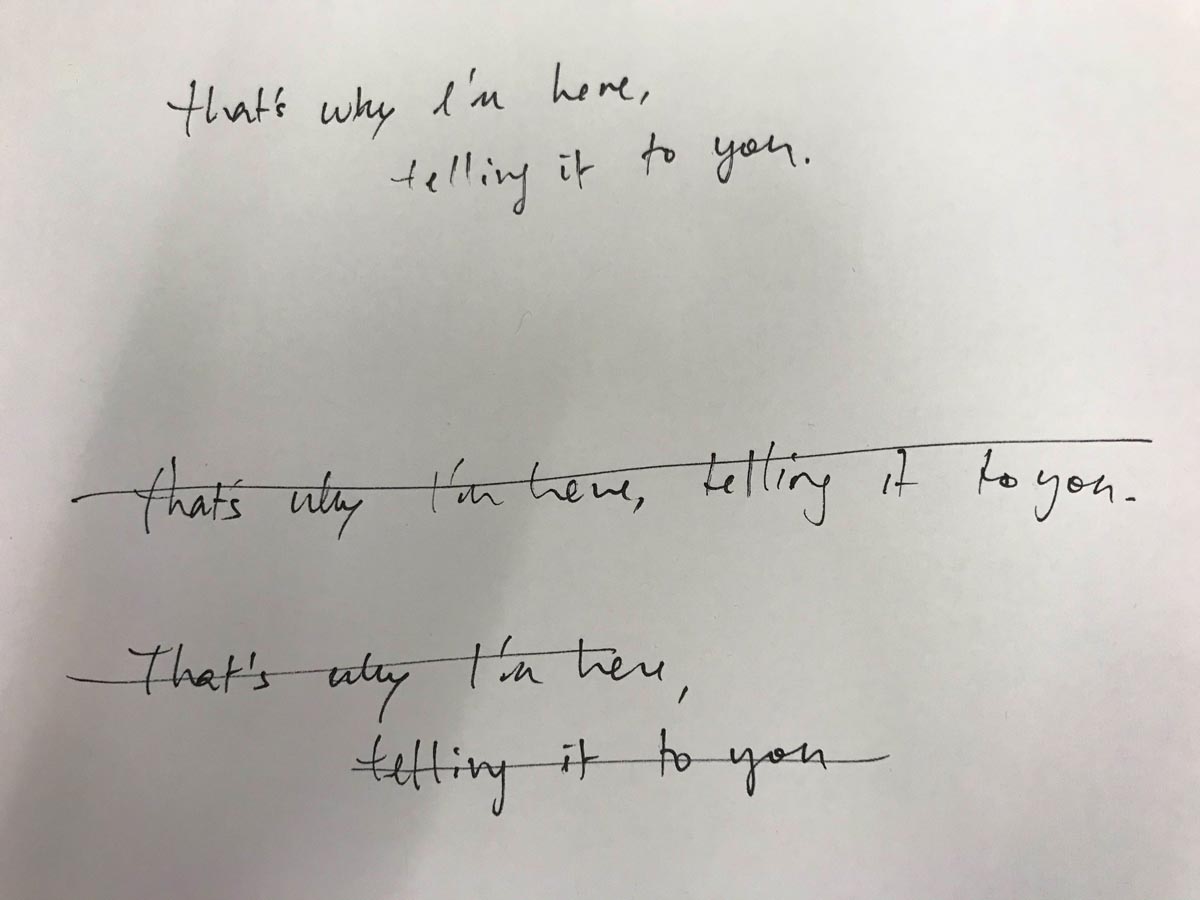 that's why I'm here,
telling it to you.
that's why I'm here, telling it to you.
That's why I'm here,
telling it to you